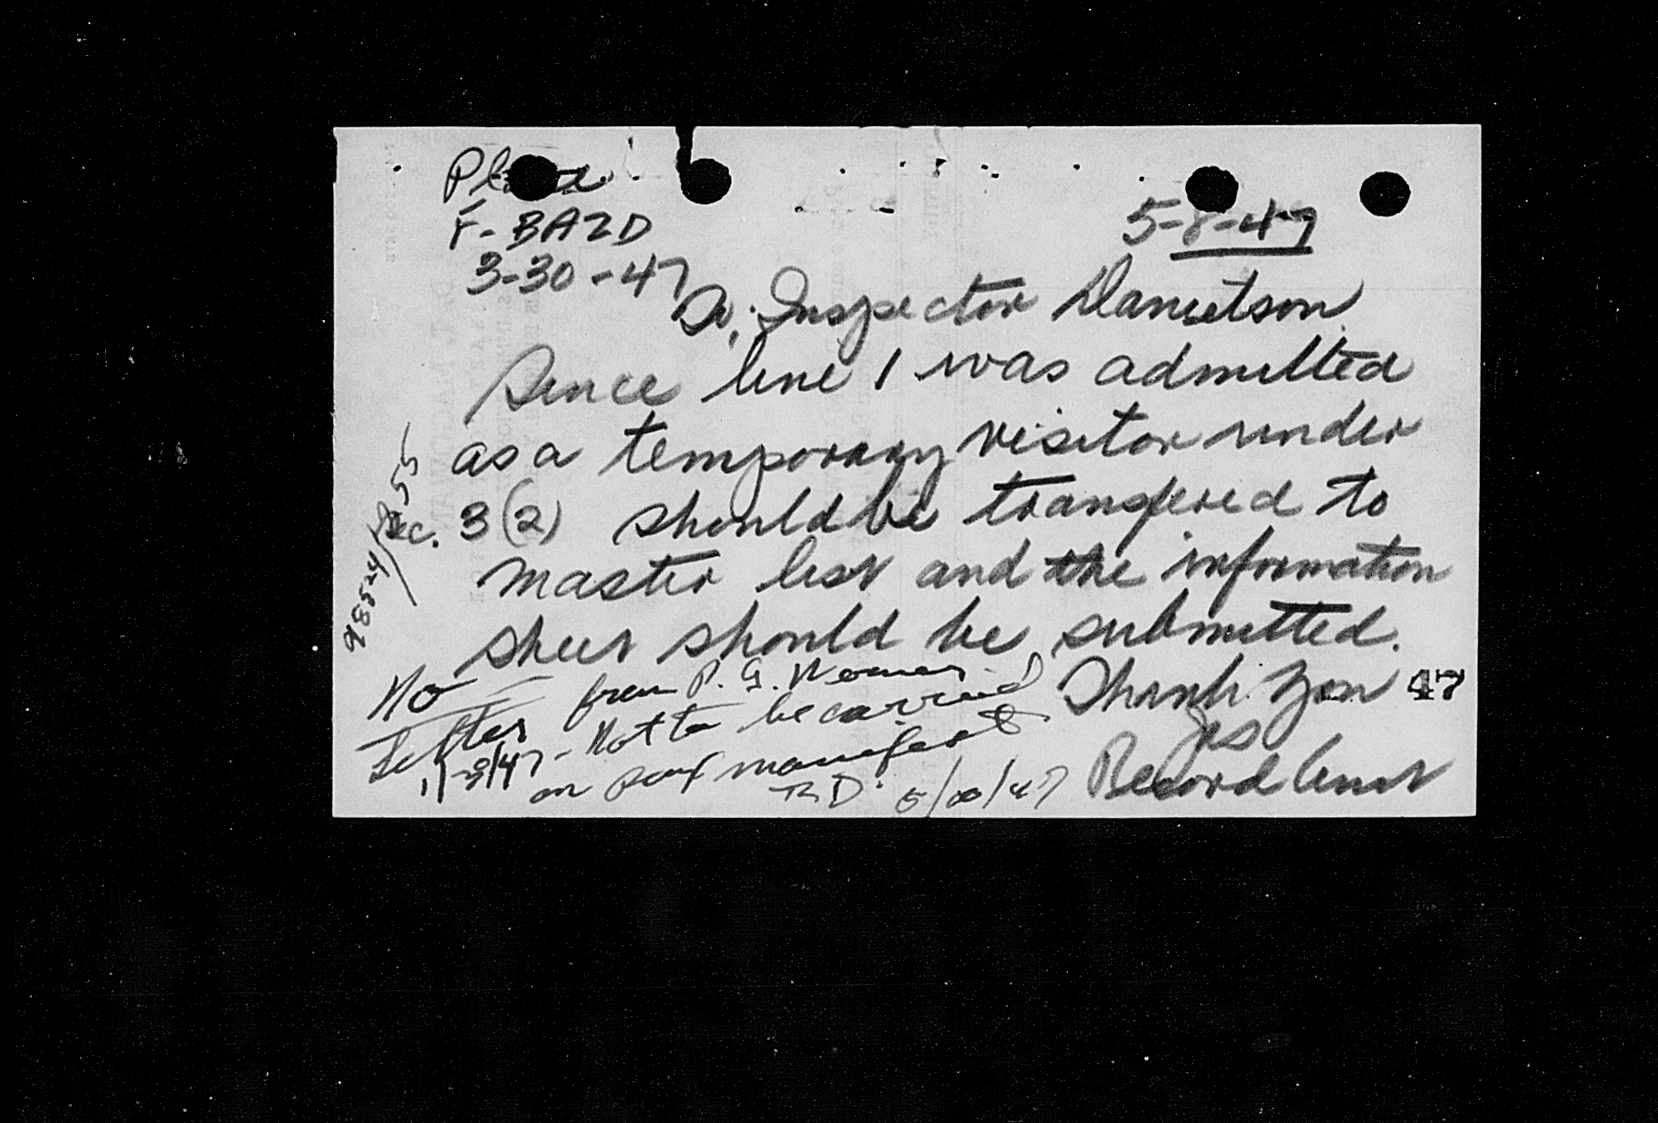 F-BAZD
3-30-47
5-8-47
To: Inspector Danielson
Since line 1 was admitted
as a temporary visitor under
Sec. 3(2) should be transfered to
master list and the information
sheet should be submitted.
Thank You
Record Unit
47
No
Letter from P. G.
11-8/47 - Not to be carried
on manifest
R D. 5/ /47
98524/ 55